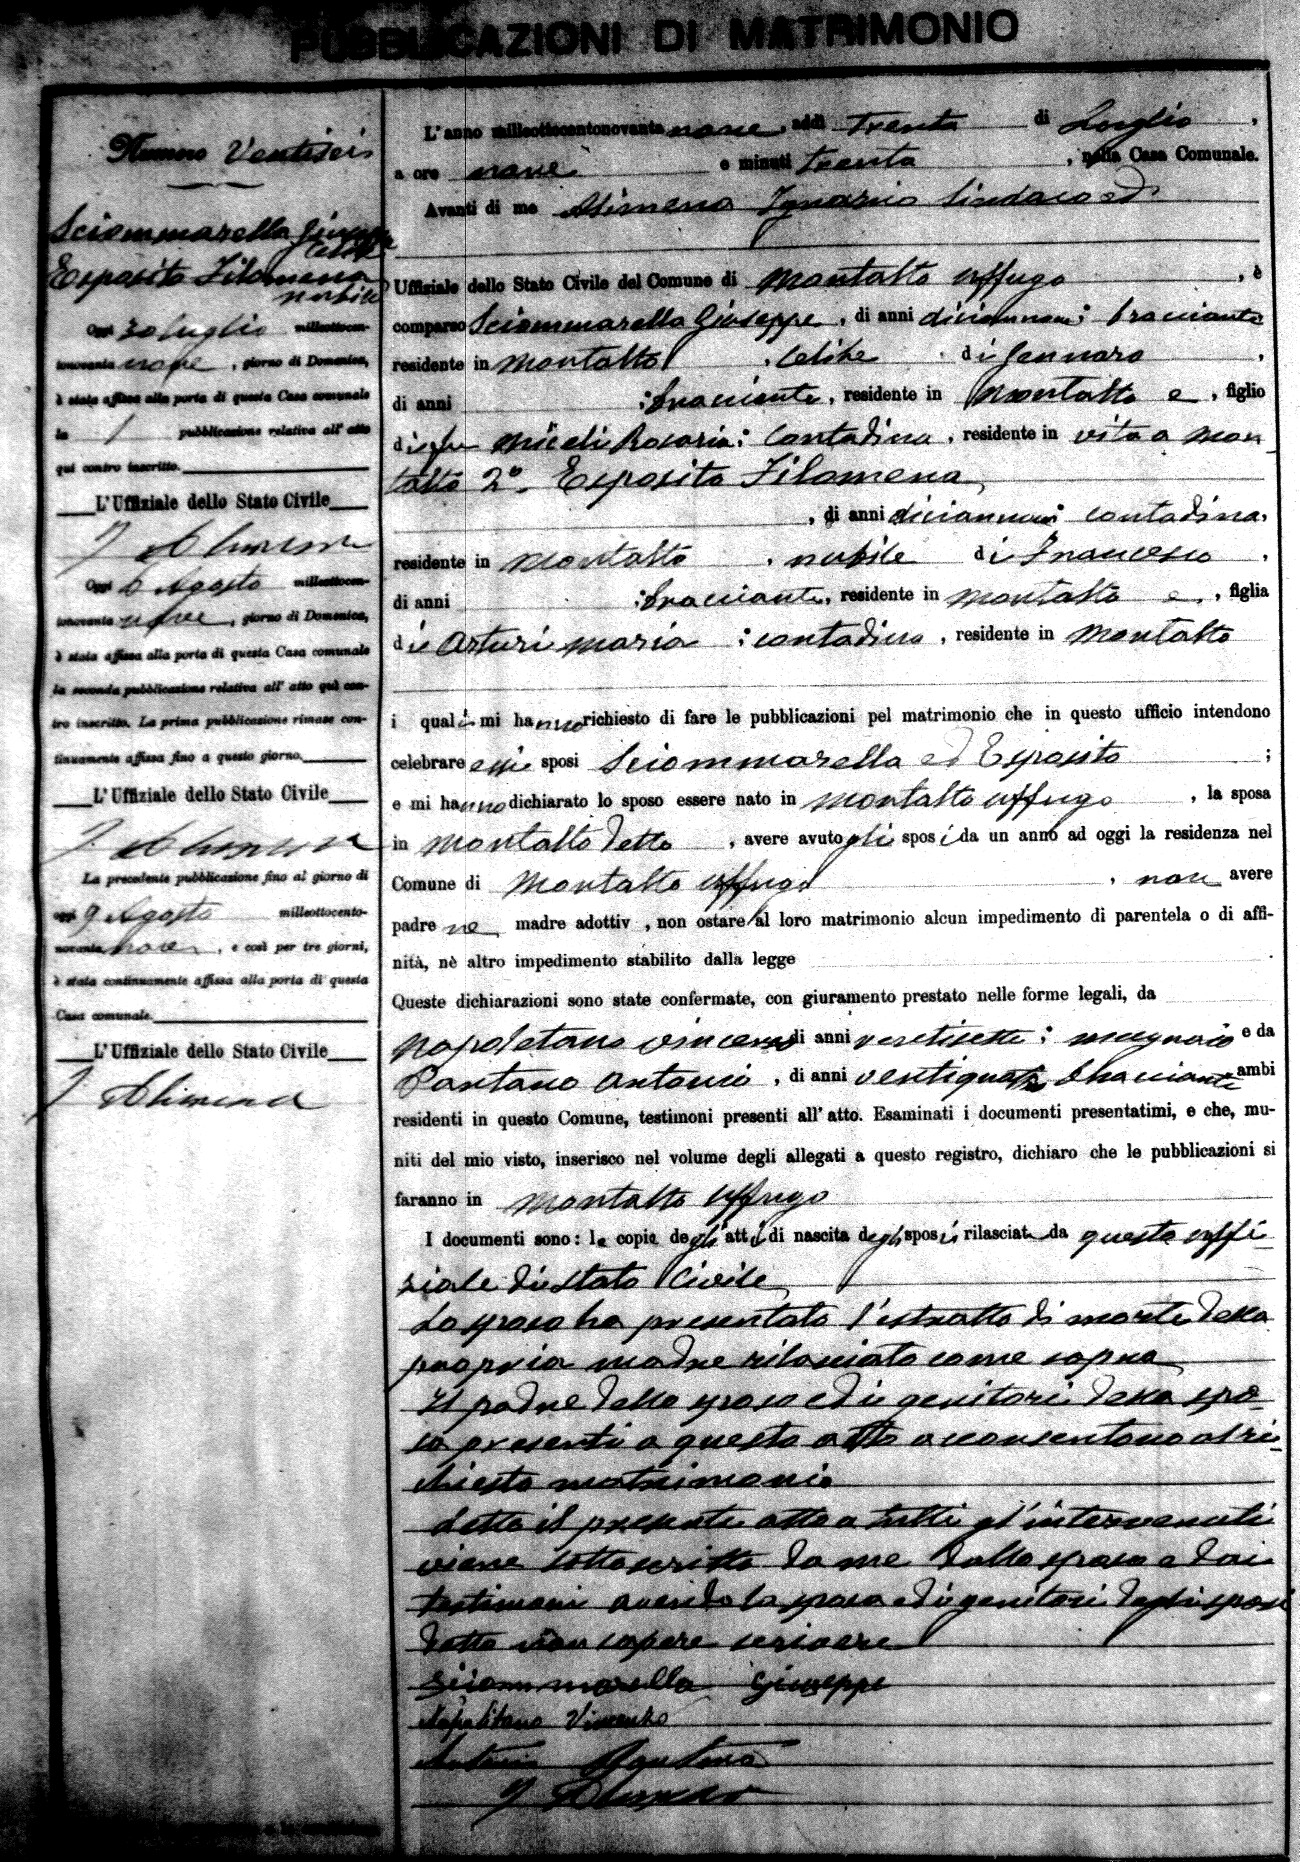 PUBBLICAZIONI DI MATRIMONIO
Numero Ventisei
Sciommarella Giuseppe
celibe
Esposito Filomena
nubile
Oggi 30 luglio milleottocen-
tonovanta nove, giorno di Domenica,
è stata affissa alla porta di questa Casa comunale
la 1 pubblicazione relativa all' atto
qui contro inscritto.
L'Uffiziale dello Stato Civile
I Alimena
Oggi 6 Agosto milleottocen-
tonovanta nove, giorno di Domenica,
è stata affissa alla porta di questa Casa comunale
la seconda pubblicazione relativa all' atto quì con-
tro inscritto. La prima pubblicazione rimase con-
tinuamente affissa fino a questo giorno.
L'Uffiziale dello Stato Civile
I. Alimena
La precedente pubblicazione fino al giorno di
oggi 9 Agosto milleottocento-
novanta nove, e così per tre giorni,
è stata continuamente affissa alla porta di questa
Casa comunale.
L'Uffiziale dello Stato Civile
I Alimena
L'anno milleottocentonovanta nove, addì trenta di Luglio,
a ore nove e minuti trenta, nella Casa Comunale.
Avanti di me Alimena Ignazio Sindaco ed
Uffiziale dello Stato Civile del Comune di Montalto uffugo, è
comparso Sciommarella Giuseppe, di anni diciannove; bracciante
residente in Montalto, celibe di Gennaro,
di anni ; bracciante, residente in Montalto e, figlio
di fu Miceli Rosaria; contadina, residente in vita a Mon
talto 2º. Esposito Filomena
, di anni contadina,
residente in Montalto, nubile di Francesco,
di anni ; bracciante, residente in Montalto e, figlia
di Arturi Maria; contadina, residente in Montalto
i quali mi hanno richiesto di fare le pubblicazioni pel matrimonio che in questo ufficio intendono
celebrare essi sposi Sciommarella ed Esposito ;
e mi hanno dichiarato lo sposo essere nato in Montalto uffugo, la sposa
in Montalto detto, avere avuto gli sposi da un anno ad oggi la residenza nel
Comune di Montalto uffugo, non avere
padre ne madre adottiv , non ostare al loro matrimonio alcun impedimento di parentela o di affi-
nità, nè altro impedimento stabilito dalla legge
Queste dichiarazioni sono state confermate, con giuramento prestato nelle forme legali, da
Napoletano Vincenzo di anni ventisette; mugnaio e da
Pantano Antonio, di anni ventiquattro bracciante ambi
residenti in questo Comune, testimoni presenti all' atto. Esaminati i documenti presentatimi, e che, mu-
niti del mio visto, inserisco nel volume degli allegati a questo registro, dichiaro che le pubblicazioni si
faranno in Montalto Uffugo
I documenti sono: le copie degli atti di nascita degli sposi rilasciate da questo uffi-
ziale di stato Civile
Lo sposo ha presentato l'estratto di morte della
propria madre rilasciato come sopra
Il padre dello sposo ed i genitori della spo-
sa presenti a questo atto acconsentono al ri-
chiesto matrimonio
Letto il presente atto a tutti gl'intervenuti
viene sottoscritto da me dallo sposo e dai
testimoni avendo la sposa ed i genitori degli sposi
detto non sapere scrivere
Sciommarella Giuseppe
Napolitano Vincenzo
Antonio
I Alimena